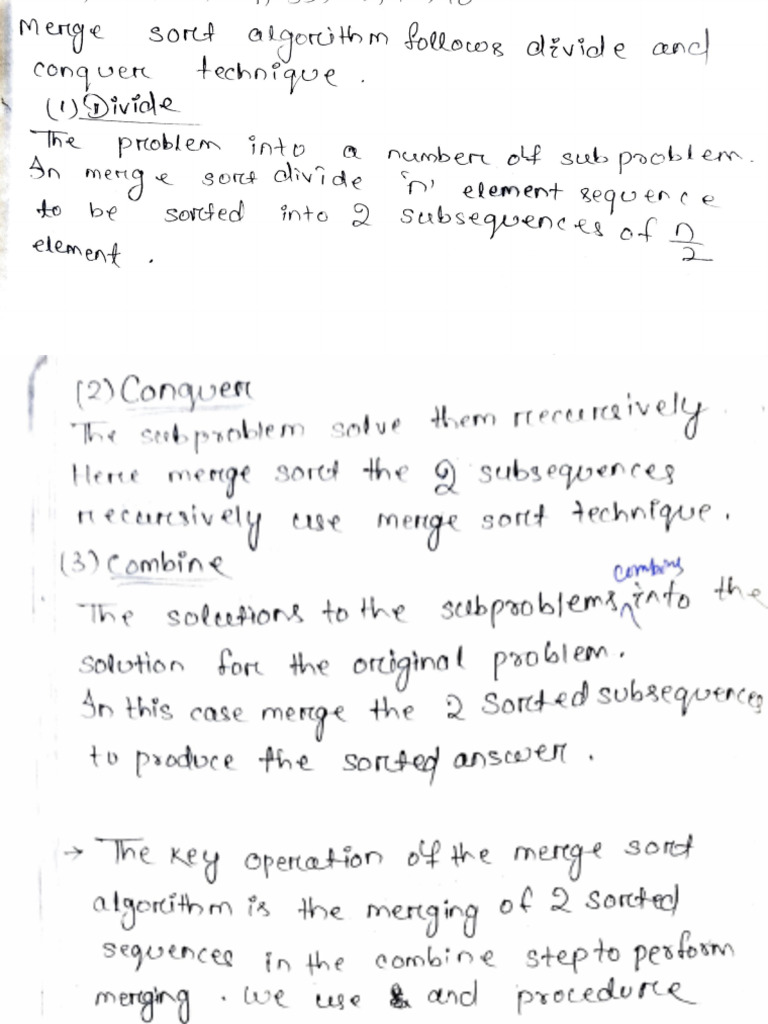 Merge sort algorithm follows divide and
conquer technique.
(1) Divide
The problem into a number of subproblem.
In merge sort divide 'n' element sequence
to be sorted into 2 subsequences of n/2
element.
(2) Conquer
The subproblem solve them recursively
Here merge sort the 2 subsequences
recursively use merge sort technique.
(3) Combine
combine
The solutions to the subproblems into the
solution for the original problem.
In this case merge the 2 sorted subsequences
to produce the sorted answer.
→ The key operation of the merge sort
algorithm is the merging of 2 sorted
sequences in the combine step to perform
merging. We use and procedure